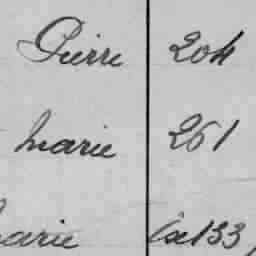 Pierre 204
Marie 261
Marie